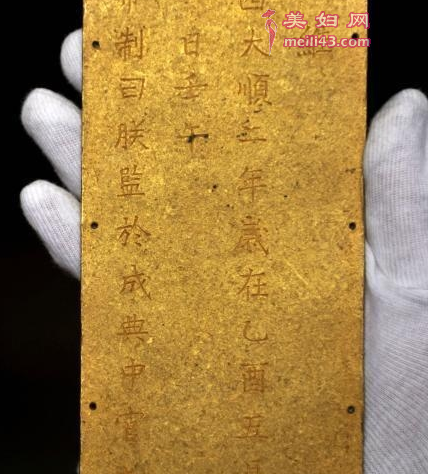 美妇网
meili43.com
西大順二年歲在乙酉五月
日壬午
制曰朕監於成典中宮